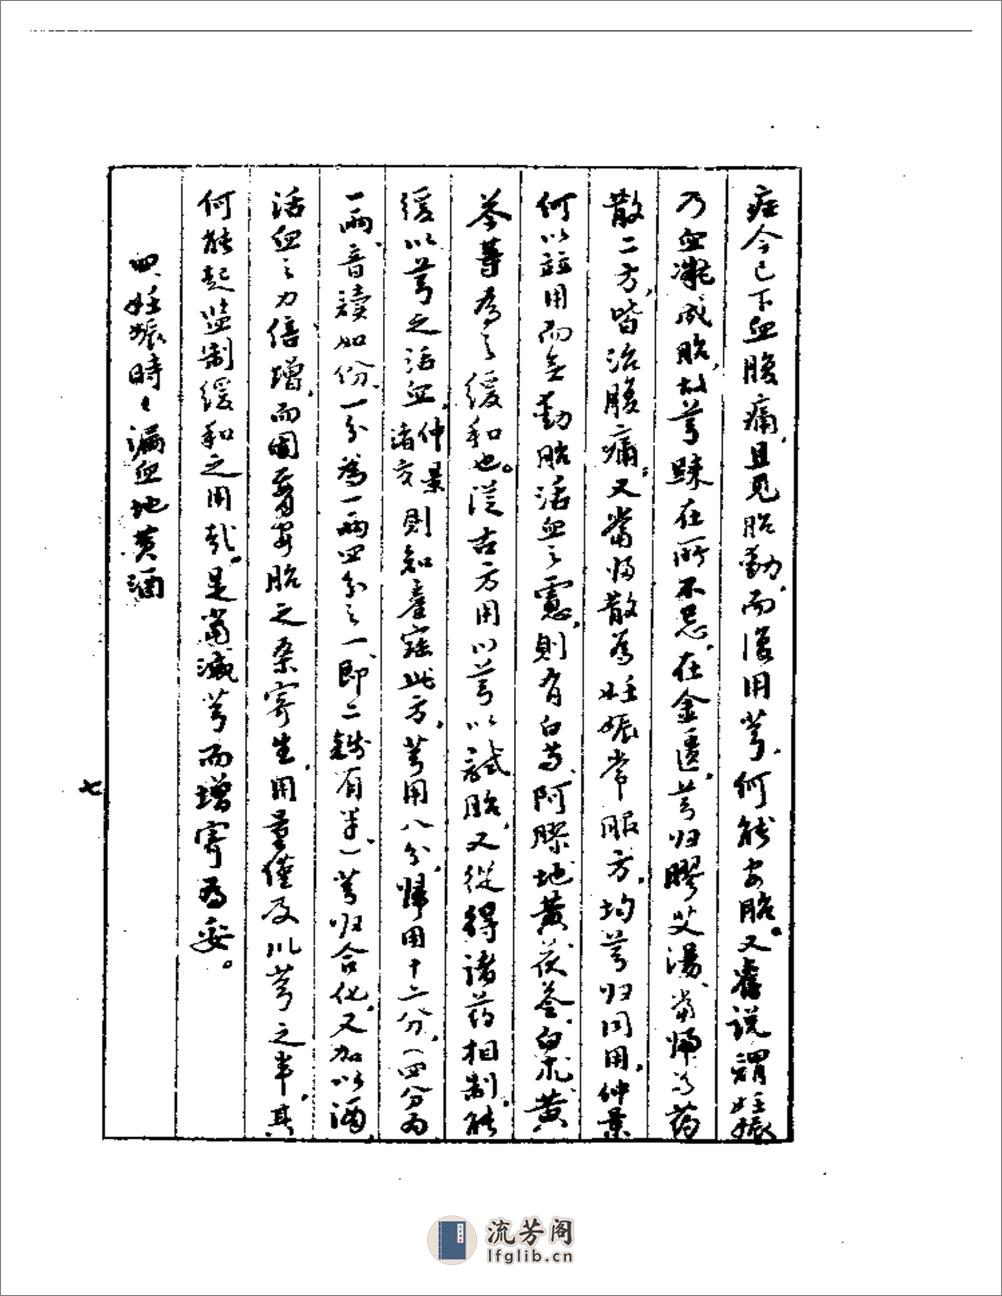 症今已下血腹痛，且见胎動，而復用芎，何能安胎。又舊说謂妊娠
乃血凝成胎，故芎歸在所不忌，在金匱，芎归膠艾湯、當歸芍药
散二方，皆治腹痛，又當归散為妊娠常服方，均芎归同用，仲景
何以并用而無動胎活血之慮，則有白芍、阿膠地黄茯苓，白朮，黄
芩等為之缓和也。从古方用川芎以試胎，又從得诸药相制能
缓川芎之活血，仲景諸方 則知
此方，芎用八分，歸用十二分，（四分为
一兩，音讀如份，一分為一兩四分之一，即二錢有半）芎归合化，又加以酒
活血之力倍增，而固腎安胎之桑寄生，用量僅及川芎之半，其
何能起监制缓和之用哉。是當減芎而增寄為妥。
四、妊娠時々漏血地黄酒
七
流芳阁
lfglib.cn